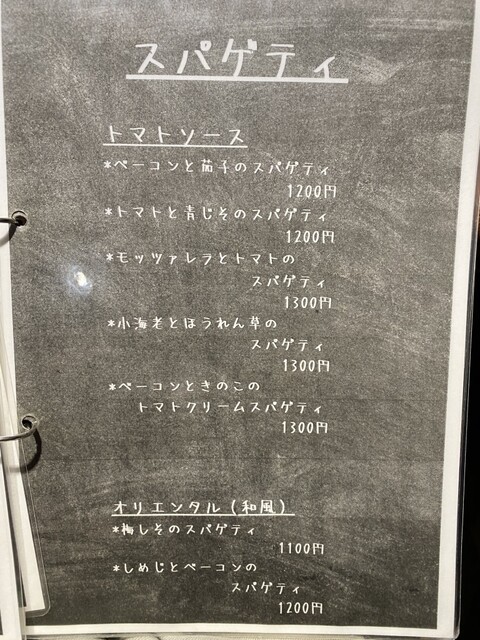 スパゲティ
トマトソース
*ベーコンと茄子のスパゲティ
1200円
*トマトと青じそのスパゲティ
1200円
*モッツァレラとトマトの
スパゲティ
1300円
*小海老とほうれん草の
スパゲティ
1300円
*ベーコンときのこの
トマトクリームスパゲティ
1300円
オリエンタル(和風)
*梅しそのスパゲティ
1100円
*しめじとベーコンの
スパゲティ
1200円